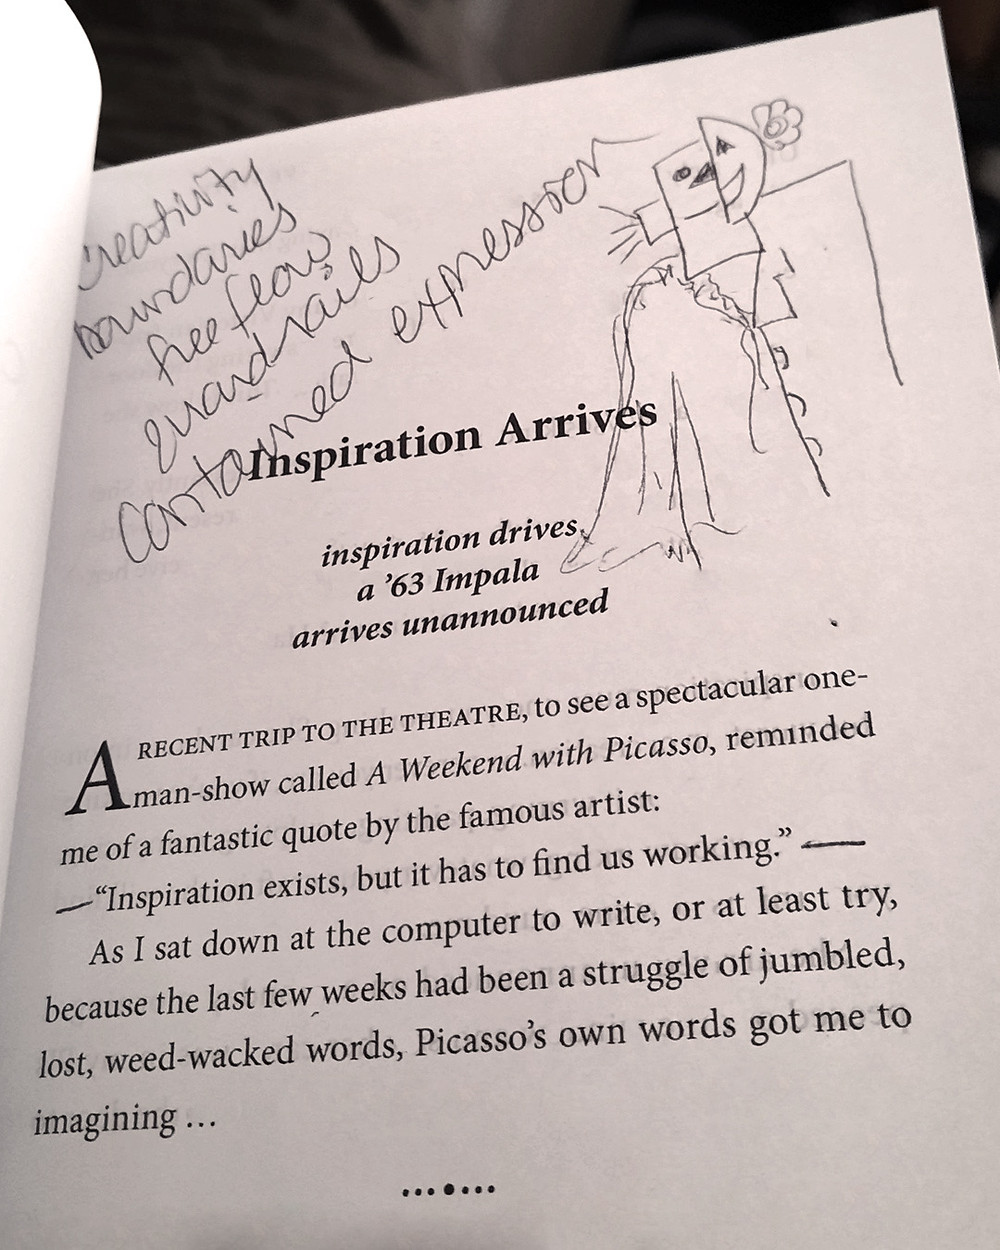 creativity
boundaries
free flow
guardrails
contained expression
Inspiration Arrives
inspiration drives
a ’63 Impala
arrives unannounced
A RECENT TRIP TO THE THEATRE, to see a spectacular one-
man-show called A Weekend with Picasso, reminded
me of a fantastic quote by the famous artist:
“Inspiration exists, but it has to find us working.”
As I sat down at the computer to write, or at least try,
because the last few weeks had been a struggle of jumbled,
lost, weed-wacked words, Picasso’s own words got me to
imagining …